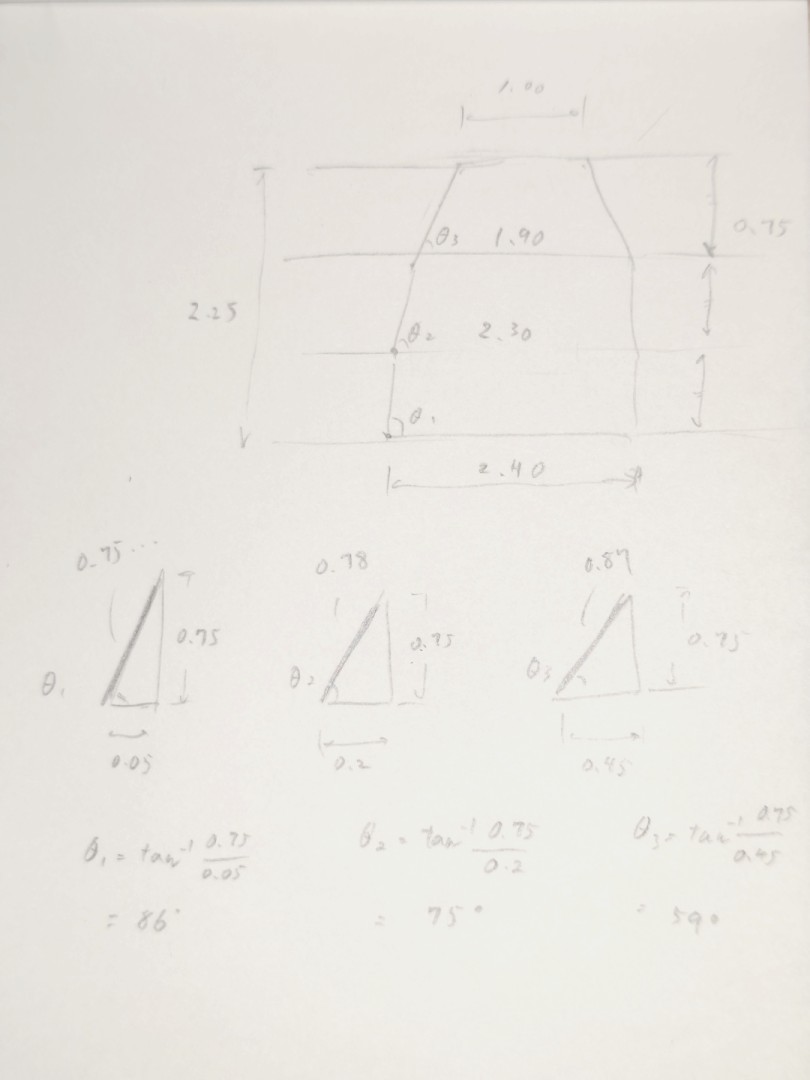 1.00
0.75
θ3 1.90
2.25
θ2 2.30
θ1
2.40
0.75...
0.78
0.87
0.75
0.75
0.75
θ1
θ2
θ3
0.05
0.2
0.45
θ1 = tan⁻¹ 0.75/0.05
θ2 = tan⁻¹ 0.75/0.2
θ3 = tan⁻¹ 0.75/0.45
= 86°
= 75°
= 59°